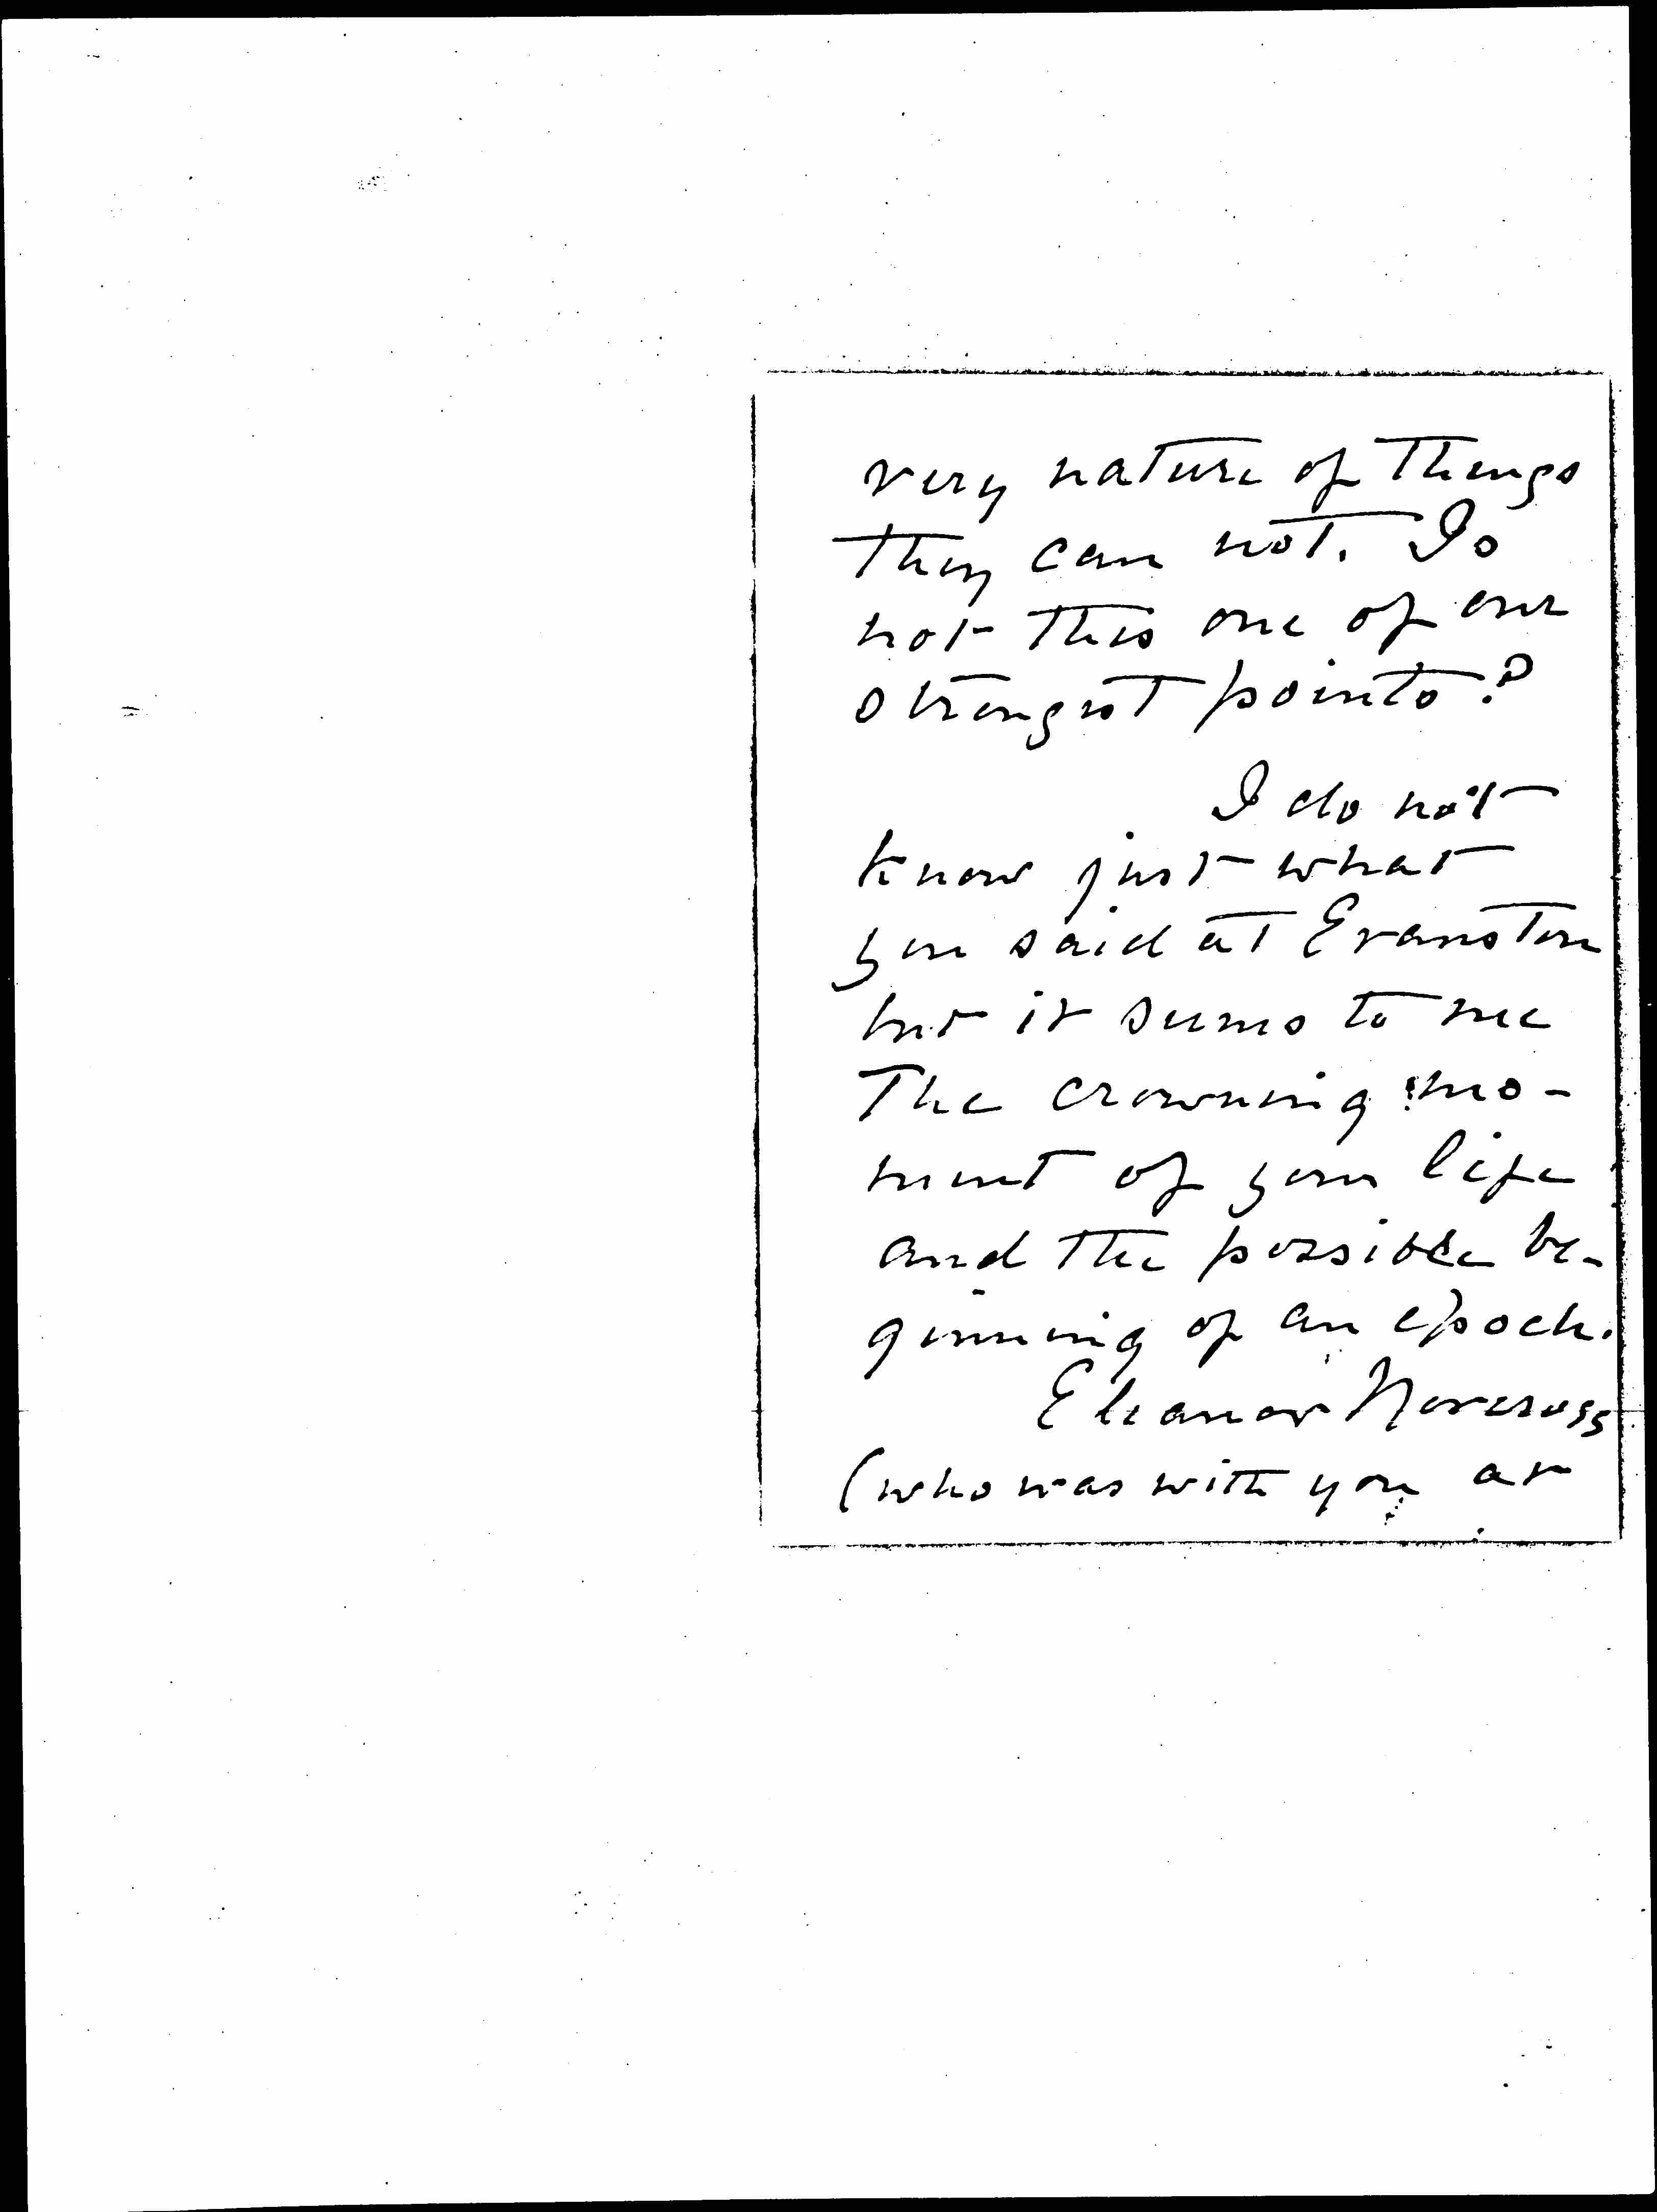 very nature of things
they can not. Is
not this one of our
strongest points?
I do not
know just what
you said at Evanston
but it seems to me
The crowning mo-
ment of your life
and the possible be-
ginning of an epoch.
Eleanor Norcross
(who was with you at